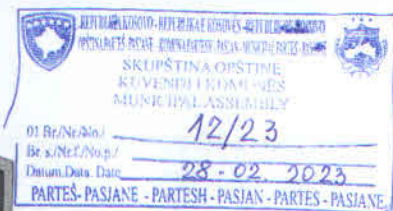 REPUBLIKA KOSOVO - REPUBLIKA E KOSOVËS - REPUBLIC OF KOSOVO
OPŠTINA PARTEŠ - PASJANE - KOMUNA PARTESH - PASJAN - MUNICIPAL PARTES - PASJANE
SKUPŠTINA OPŠTINE
KUVENDI I KOMUNËS
MUNICIPAL ASSEMBLY
01 Br./Nr./No./ 12/23
Br. s./Nr.f./No.p./
Datum.Data. Date 28-02. 2023
PARTEŠ- PASJANE - PARTESH - PASJAN - PARTES - PASJANE